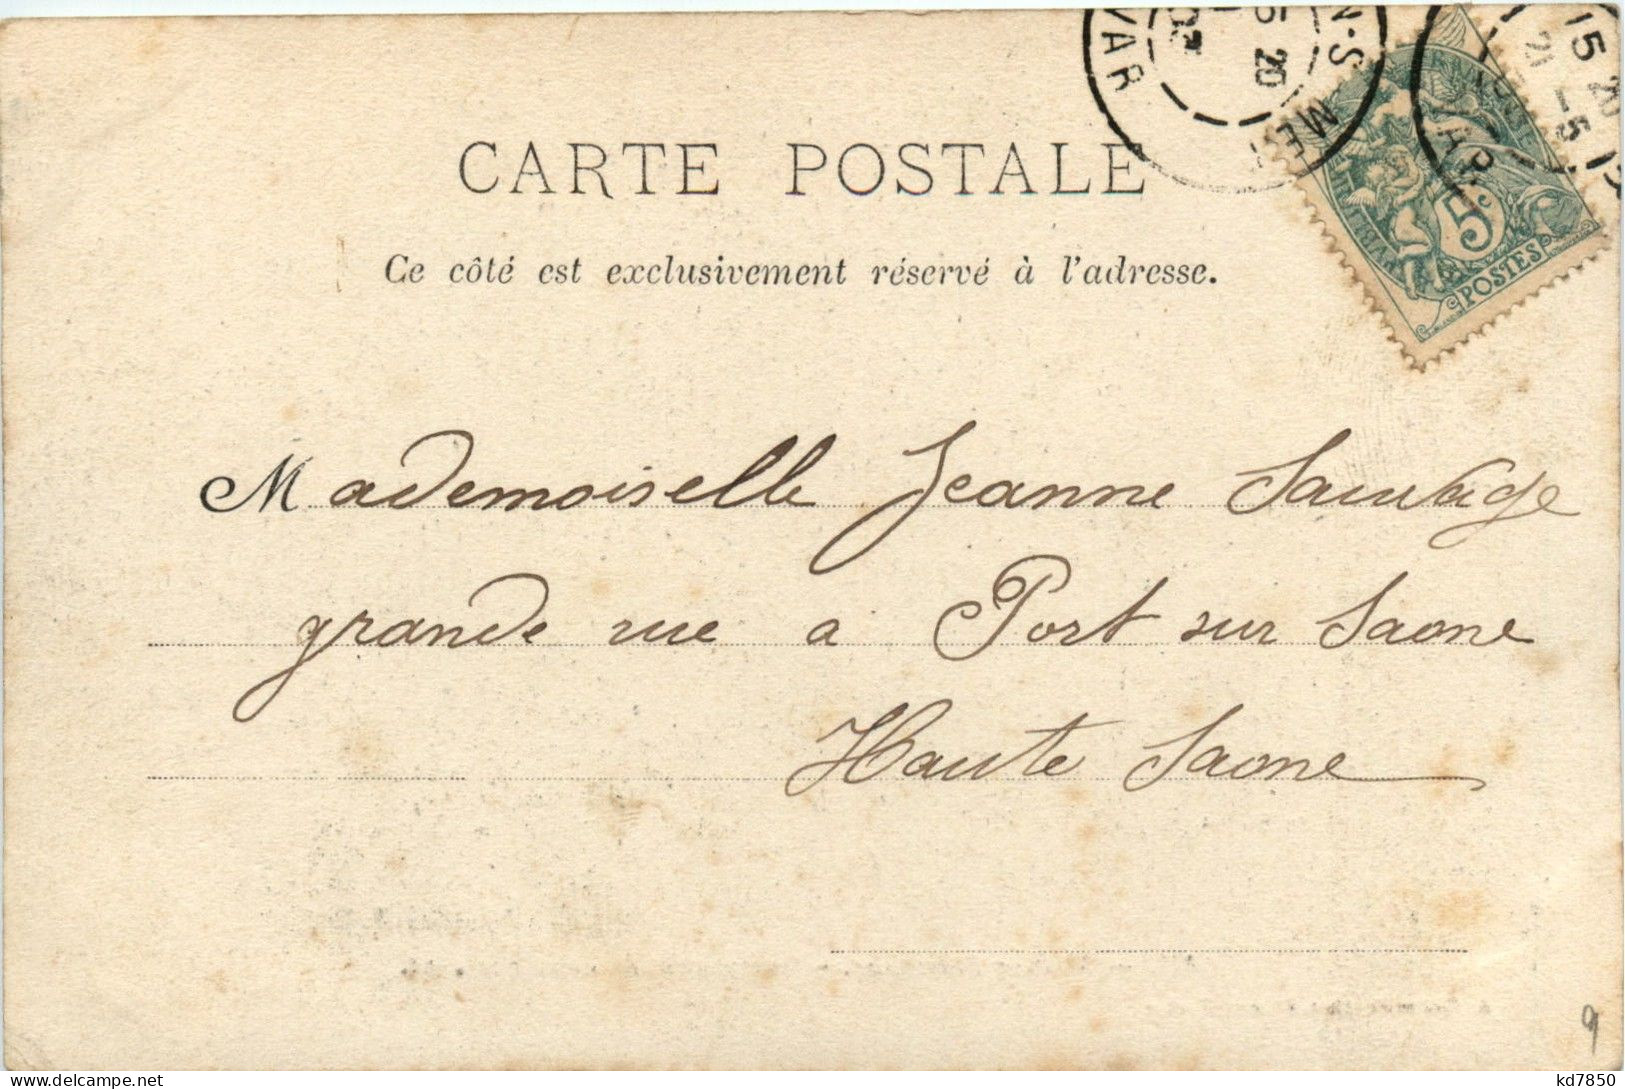 CARTE POSTALE
Ce côté est exclusivement réservé à l'adresse.
N-S ME
VAR
15 20
VAR
15 20
21 -5
5c
POSTES
Mademoiselle Jeanne Sauvage
grande rue a Port sur Saone
Haute Saone
9
kd7850